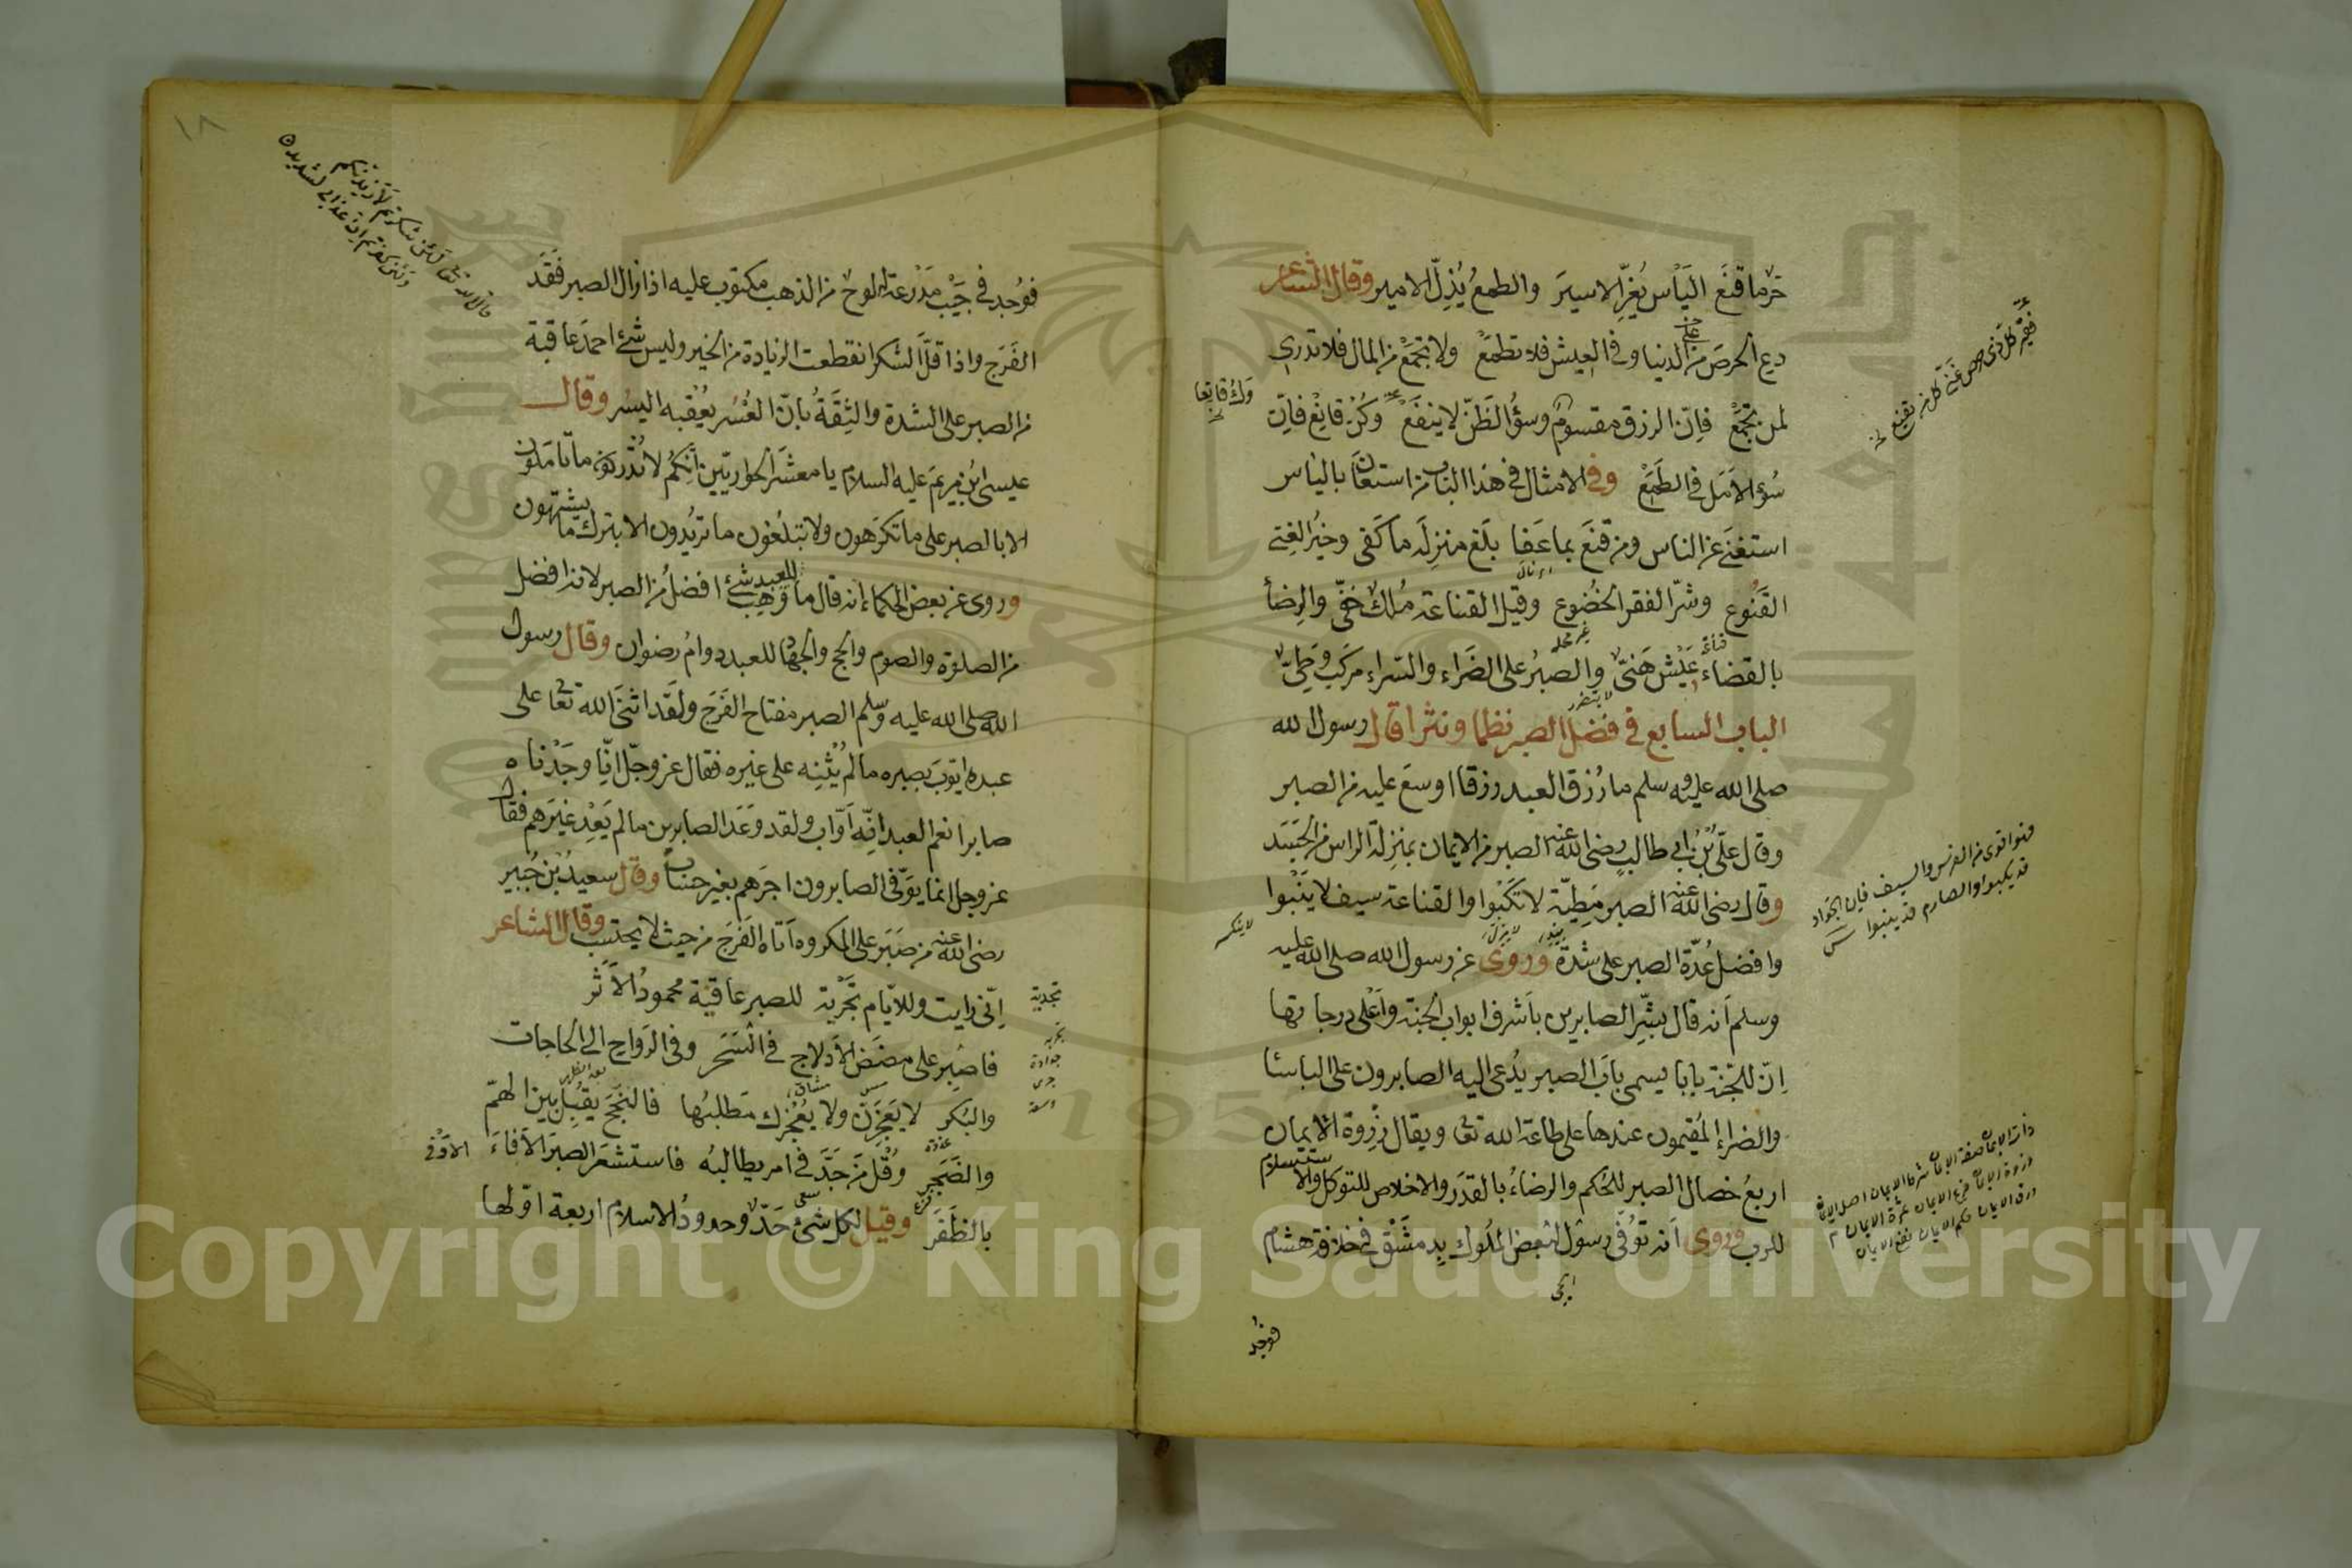 حرّ ما قنَع اليَأس يُعِزّ الاسيرَ والطمعُ يُذِلّ الامير وقال الشاعر
دع الحرصَ من الدنيا وفى العيش فلا تطمَعْ ولا تجمَعْ من المال فلا تدرى
لمن تجمَعْ فاِنّ الرزق مقسوم وسوُ الظنّ لا ينفَعْ وكُنْ قانِعْ فاِنّ
وكُ قانِعًا
سُؤ الاَمَل فى الطَمَعْ وفى الامثال فى هذا الباب من استعان بالياس
استغنَى عن الناس ومن قنَعَ بما عَفَا بلَغ منزِلَه ما كَفى وخيرُ الغِنَى
القَنُوع وشرّ الفقر الخُضُوع وقيل القناعة مُلك خفىّ والرِضأ
بالقضاء عَيْش هَنىّ والصبرُ على الضَرَاء والسَراء مركَب وَطِىّ
الباب السابع فى فضل الصبر نظما ونثرا قال رسول الله
صلى الله عليه وسلم ما رُزق العبد رزقا اوسعَ عليه من الصبر
وقال علىّ بْنُ ابى طالبٍ رضى الله عنه الصبر من الايمان بمنزِلة الراس من الجَسَد
وقال رضى الله عنه الصبر مَطِيّة لا تَكْبُوا والقناعة سيف لا يَنْبُوا
وافضل عُدّة الصبر على شدة ورُوِىَ عن رسول الله صلى الله عليه
وسلم اَنه قال بشِّرِ الصابرين باَشرف ابواب الجنة واَعْلى درجاتها
اِنّ للجَنة بابا يسمى باَب الصبر يُدعى اليه الصابرون على الباسا
والضراء المُقيمون عندها على طاعة الله تعا ويقال ذِروة الايمان
اربعُ خصال الصبر للحُكم والرضاءُ بالقدَر والاخلاص للتوكل والاستسلام
للرب ورُوِىَ اَنه تُوُفّى رسول لبعض الملوك بِدِمَشْقَ فى خلافة هشام
فوُجد
فقير كل ذى حرص غنى كل من يقنع
قد يكبوا والصارم قد ينبوا
١٨
قال الله تعا لئن شكرتم لازيدنكم
ولئن كفرتم اِن عذابى لشديد
فوُجد فى جَيْب مَدْرعته لوح من الذهب مكتوب عليه اذا زال الصبر فقَد
الفَرَج واذا قلَّ الشكر انقطعت الزيادة من الخير وليس شئ احمدَ عاقبة
من الصبر على الشدة والثِقَةُ بانّ العُسْر يعْقبه اليسُر وقال
عيسى بْن مريمَ عليه السلام يا معشَر الحواريّين اِنكم لا تُدركون ما تأمَلون
الا بالصبر على ما تكرَهون ولا تبلُغون ما تريُدون الا بترك ما يشتهون
وروى عن بعض الحكماء انه قال ما وُهِبَ للعبد شئ افضل من الصبر لانه افضل
من الصلوة والصوم والحج والجهاد للعبد دوامُ رضوان وقال رسول
الله صلى الله عليه وسلم الصبر مفتاح الفَرَج ولقَد اثنَى الله تعا على
عبده ايّوبَ بصبره ما لم يُثْنِه على غيره فقال عز وجلّ انّا وجَدْناه
صابرا نعم العبد اِنه اَوّاب ولقد وَعَد الصابرين ما لم يَعِدْ غيَرهم فقال
عز وجل انما يوَفّى الصابرون اجرَهم بغير حساب وقال سعيدُ بْن جُبير
رضى الله عنه من صَبَر على المكروه اَتاه الفَرَج من حيث لا يحتسِب وقال الشاعر
اِنّى رايت وللايّام تجْرِبة للصبر عاقبة محمودُ الاَثر
فاصْبر على مضَض الاَدلاج فى السَحَر وفى الرَواح الى الحاجات
والبُكر لا يَعجَزَنّ ولا يُعْجِزك مَطلبُها فالنجَح يقبُل بين الهمّ
والضَجَر وقُل مَن جَدَّ فى امر يطالبُه فاستشعَر الصبر الاّ فاءَ
بالظَفَر وقيل لكل شئ حَدّ وحدودُ الاسلام اربعة اوّلها